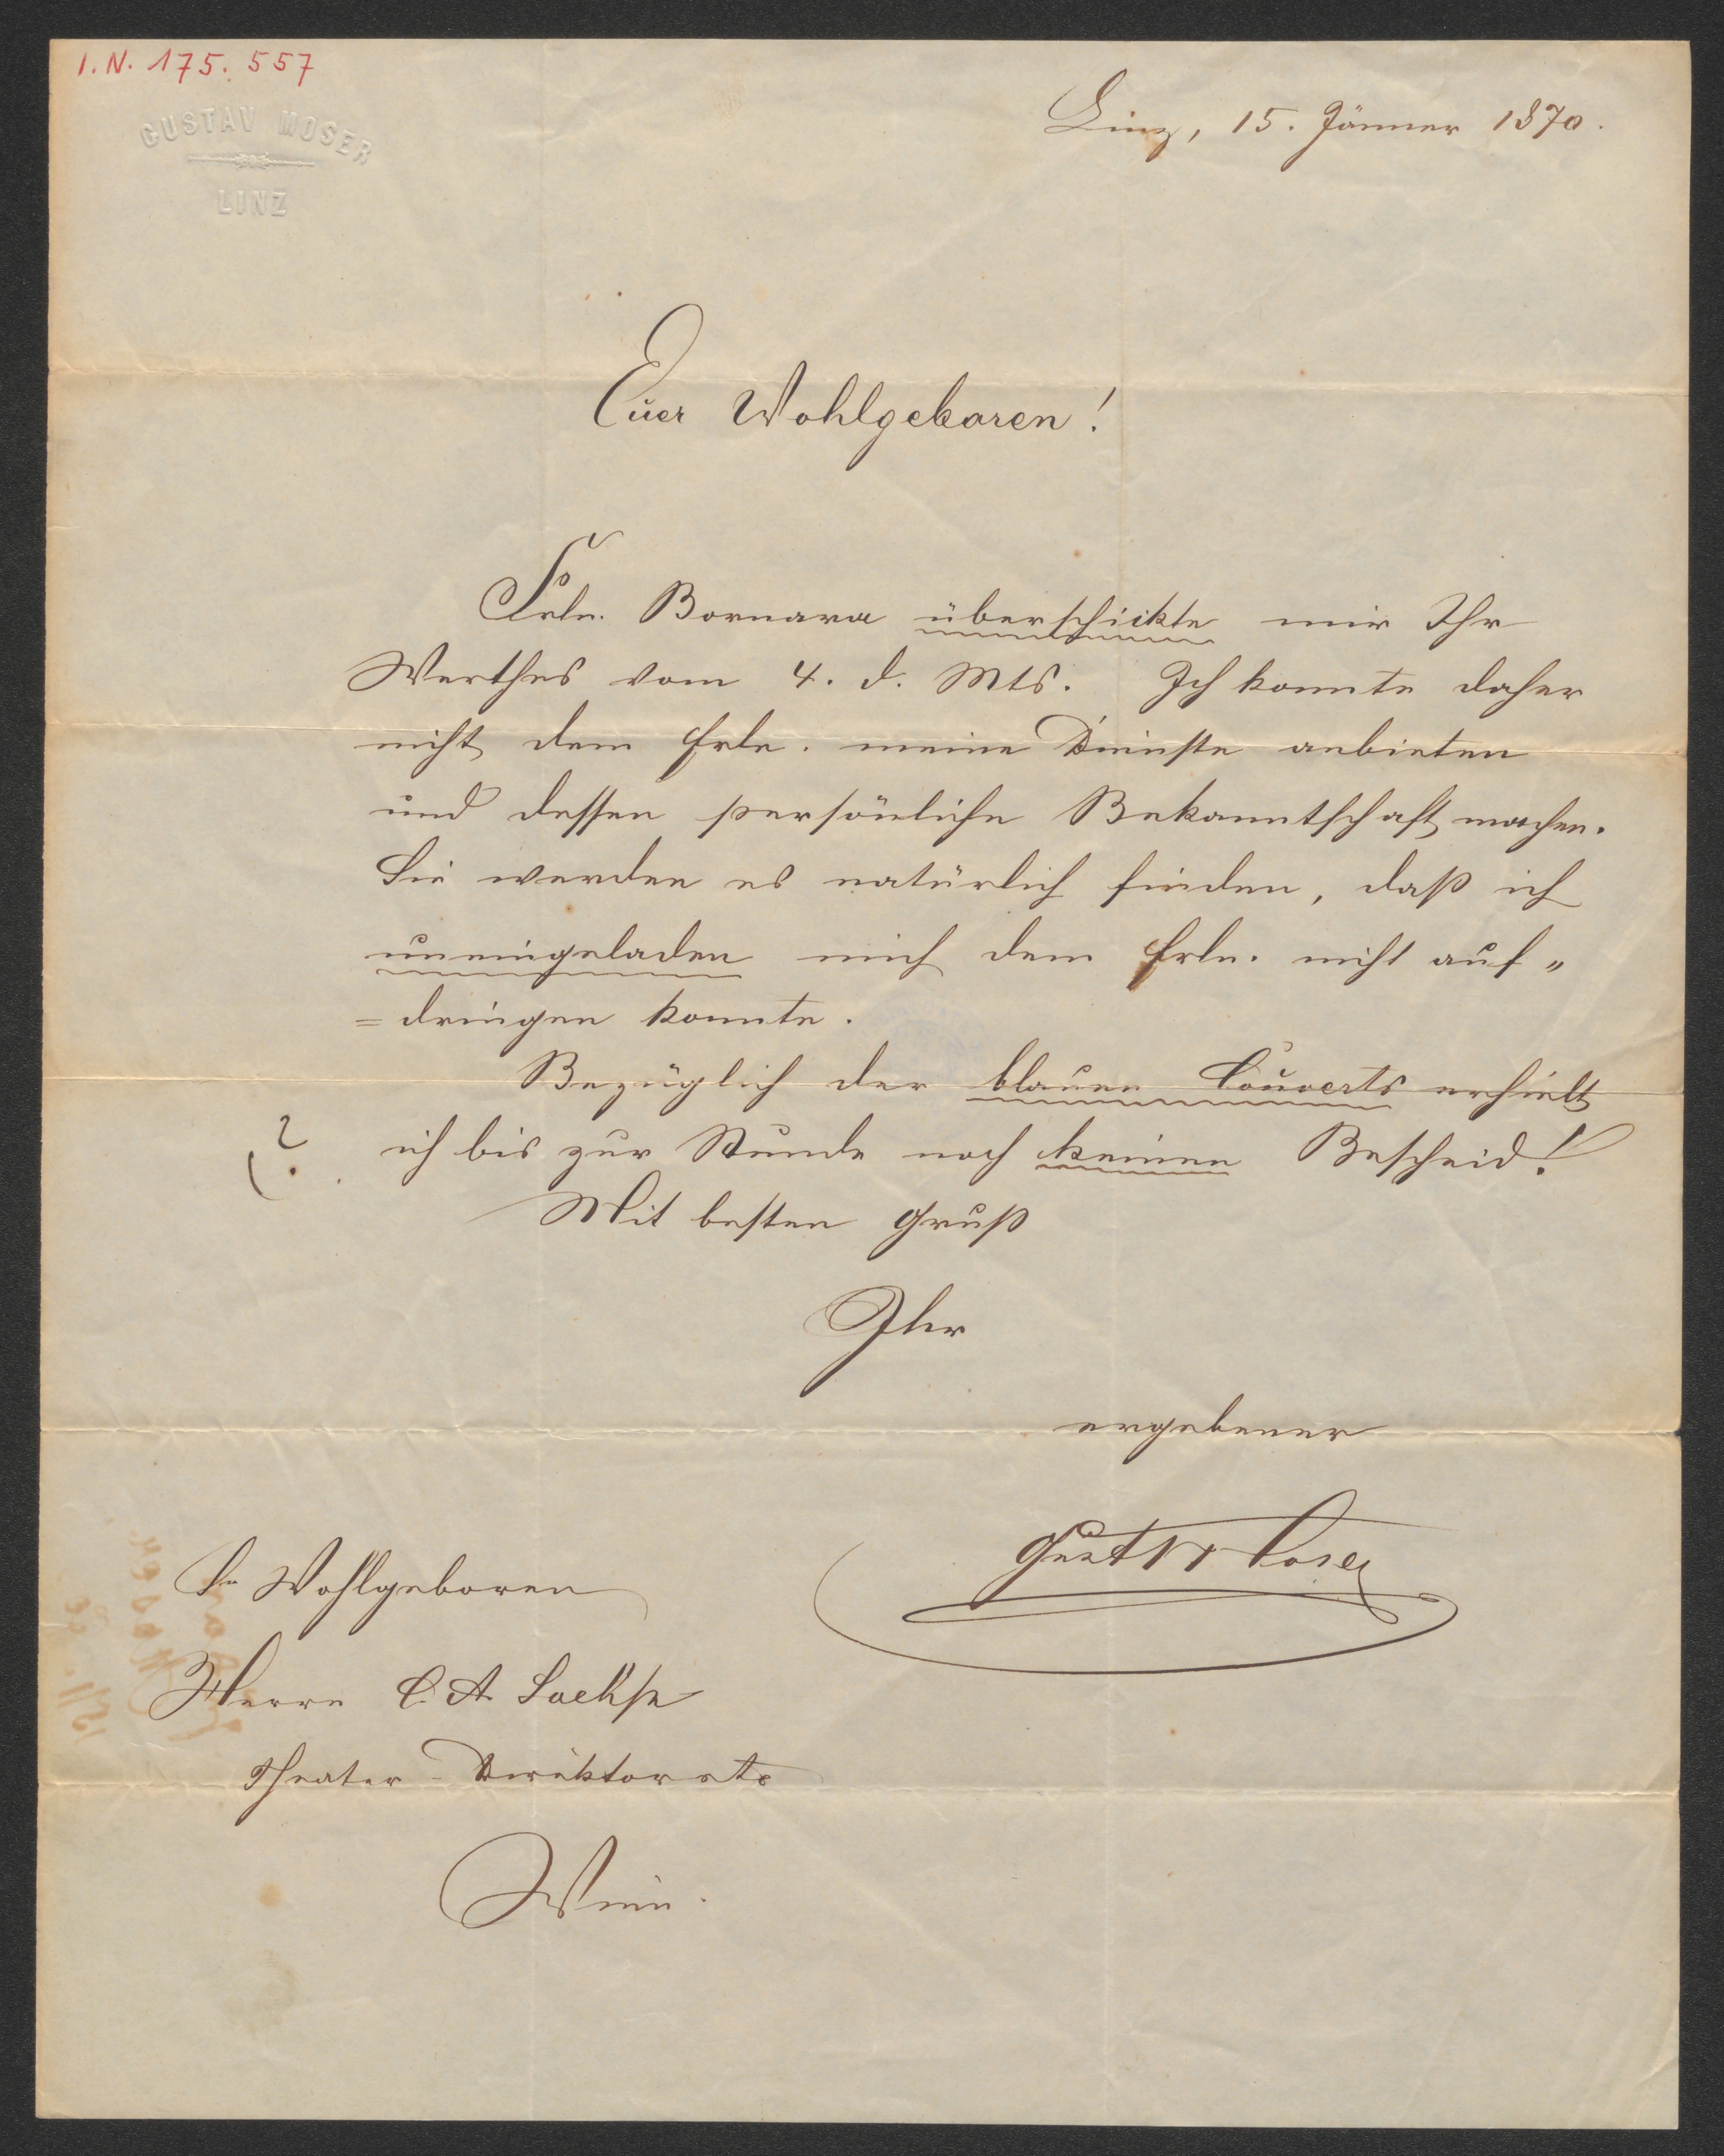 I.N. 175.557
GUSTAV MOSER
LINZ
Linz, 15. Jänner 1870.
Euer Wohlgeboren!
Frln. Bornara überschickte mir Ihr
Werthes vom 4. d. Mts. Ich konnte daher
nicht dem Frln. meine Dienste anbieten
und dessen persönliche Bekanntschaft machen.
Sie werden es natürlich finden, daß ich
uneingeladen mich dem Frln. nicht auf„
=dringen konnte.
Bezüglich der blauen Couverts erhielt
? ich bis zur Stunde noch keinen Bescheid!
Mit besten Gruß
Ihr
ergebener
Gust Moser
Sr Wohlgeboren
Herrn C. A. Sachse
Theater-Direktor etc
Wien.